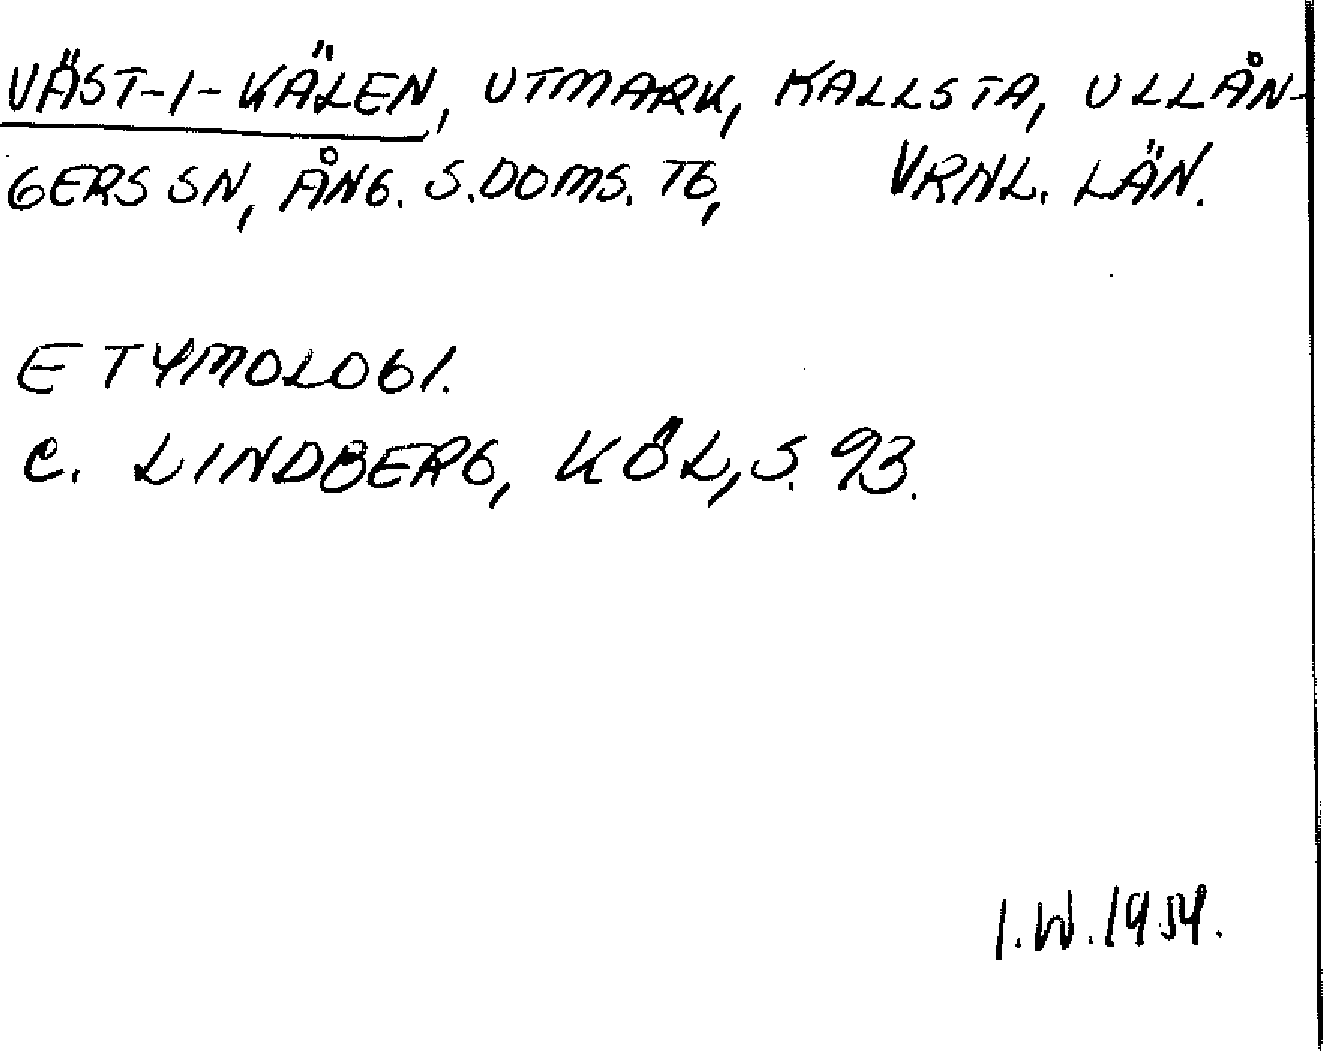 VÄST-I-KÄLEN, UTMARK, KALLSTA, ULLÅN-
GERS SN, ÅNG. S. DOMS. TG, VRNL. LÄN.
ETYMOLOGI.
C. LINDBERG, KÖL, S. 93.
I.W. 1954.